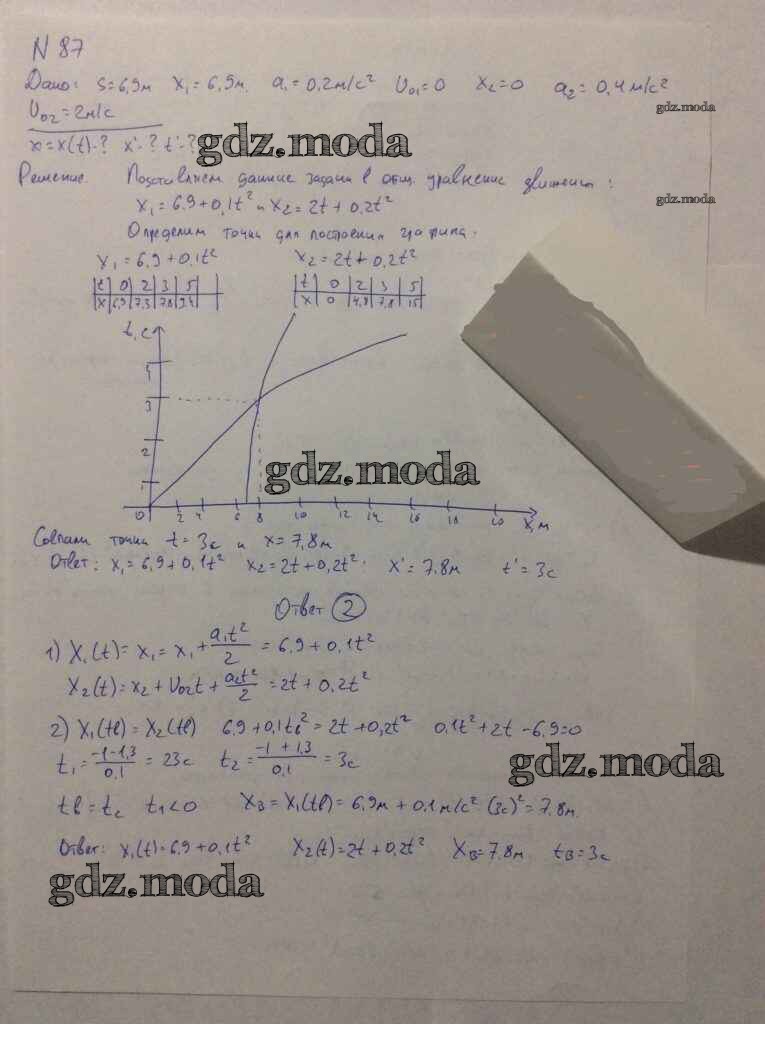 N 87
Дано: S=6,9м x₁=6,9м. a₁=0,2м/с² U₀₁=0 x₂=0 a₂=0,4м/с²
gdz.moda
U₀₂=2м/с
x=x(t)-? x'-? t'-?
gdz.moda
Решение. Подставляем данные задачи в общ. уравнение движения:
gdz.moda
x₁=6.9+0,1t² и x₂=2t+0,2t²
Определим точки для построения графика.
x₁=6,9+0,1t² x₂=2t+0,2t²
t 0 2 3 5 t 0 2 3 5
x 6,9 7,3 7,8 9,4 x 0 4,8 7,8 15
t, c
5
3
2
1
gdz.moda
0 2 4 6 8 10 12 14 16 18 20 x, м
Совпали точки t=3с и x=7,8м
Ответ: x₁=6,9+0,1t² x₂=2t+0,2t²; x'=7.8м t'=3с
Ответ 2
1) x₁(t)=x₁=x₁+a₁t²/2=6,9+0.1t²
x₂(t)=x₂+U₀₂t+a₂t²/2=2t+0.2t²
2) x₁(tв)=x₂(tв) 6.9+0,1tв²=2t+0,2t² 0.1t²+2t-6.9=0
t₁=-1-1,3/0,1=23с t₂=-1+1,3/0,1=3с
gdz.moda
tв=t₂ t₁<0 xв=x₁(tв)=6,9м+0.1м/с²(3с)²=7.8м.
Ответ: x₁(t)=6.9+0,1t² x₂(t)=2t+0,2t² xв=7.8м tв=3с
gdz.moda